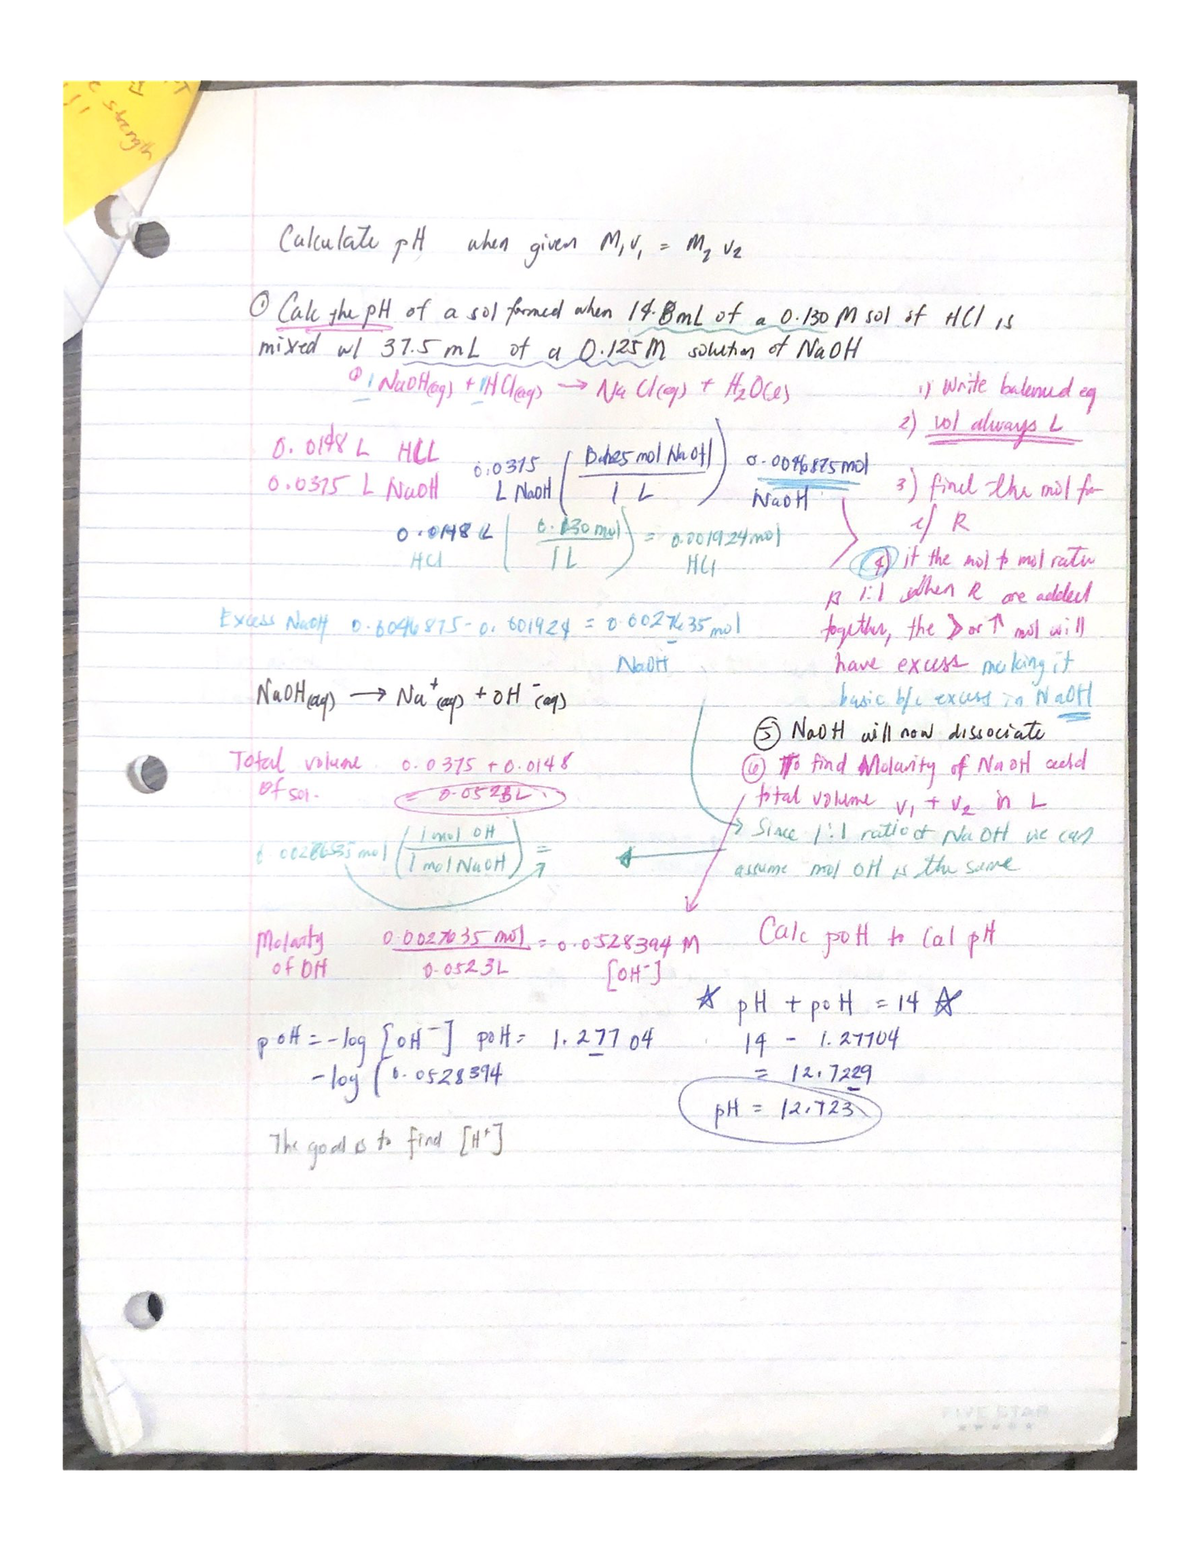 strength
Calculate pH when given M₁V₁ = M₂V₂
① Calc the pH of a sol formed when 14.8mL of a 0.130 M sol of HCl is
mixed w/ 37.5 mL of a 0.125M solution of NaOH
① 1 NaOH(aq) + 1HCl(aq) → NaCl(aq) + H₂O(l)
1) Write balanced eq
2) vol always L
0.0148 L HCl
0.0375 L NaOH
0.0375 L NaOH ( mol NaOH / 1 L ) 0.0046875mol NaOH
3) find the mol for
e/ R
0.0148 L HCl ( 0.130 mol / 1L ) = 0.001924mol HCl
④ if the mol to mol ratio
is 1:1 when R are added
together, the > or ↑ mol will
have excess making it
basic b/c excess in NaOH
Excess NaOH 0.0046875 - 0.001924 = 0.0027635mol
NaOH
NaOH(aq) → Na⁺(aq) + OH⁻(aq)
⑤ NaOH will now dissociate
⑥ To find Molarity of NaOH add
total volume V₁ + V₂ in L
Total volume 0.0375 + 0.0148
of sol. = 0.0523L
→ Since 1:1 ratio of NaOH we can
assume mol OH is the same
mol ( 1 mol OH / 1 mol NaOH ) =
Molarity of OH 0.0027635 mol / 0.0523L = 0.0528394 M [OH⁻]
Calc pOH to Cal pH
☆ pH + pOH = 14 ☆
14 - 1.27704
= 12.7229
pH = 12.723
pOH = -log [OH⁻] pOH = 1.27704
-log (0.0528394
The goal is to find [H⁺]
FIVE STAR